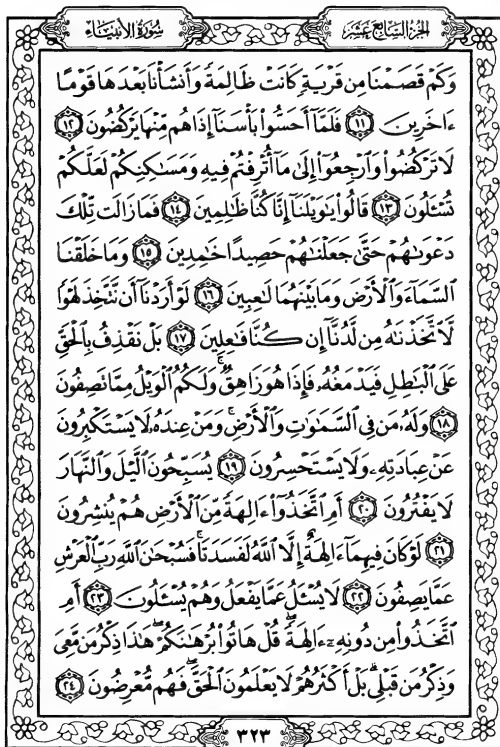 سُورَةُ الأَنْبِيَاءِ الجُزْءُ السَّابِعَ عَشَرَ
وَكَمْ قَصَمْنَا مِن قَرْيَةٍ كَانَتْ ظَالِمَةً وَأَنشَأْنَا بَعْدَهَا قَوْمًا
ءَاخَرِينَ ﴿١١﴾ فَلَمَّآ أَحَسُّوا۟ بَأْسَنَآ إِذَا هُم مِّنْهَا يَرْكُضُونَ ﴿١٢﴾
لَا تَرْكُضُوا۟ وَٱرْجِعُوٓا۟ إِلَىٰ مَآ أُتْرِفْتُمْ فِيهِ وَمَسَٰكِنِكُمْ لَعَلَّكُمْ
تُسْـَٔلُونَ ﴿١٣﴾ قَالُوا۟ يَٰوَيْلَنَآ إِنَّا كُنَّا ظَٰلِمِينَ ﴿١٤﴾ فَمَا زَالَت تِّلْكَ
دَعْوَىٰهُمْ حَتَّىٰ جَعَلْنَٰهُمْ حَصِيدًا خَٰمِدِينَ ﴿١٥﴾ وَمَا خَلَقْنَا
ٱلسَّمَآءَ وَٱلْأَرْضَ وَمَا بَيْنَهُمَا لَٰعِبِينَ ﴿١٦﴾ لَوْ أَرَدْنَآ أَن نَّتَّخِذَ لَهْوًا
لَّٱتَّخَذْنَٰهُ مِن لَّدُنَّآ إِن كُنَّا فَٰعِلِينَ ﴿١٧﴾ بَلْ نَقْذِفُ بِٱلْحَقِّ
عَلَى ٱلْبَٰطِلِ فَيَدْمَغُهُۥ فَإِذَا هُوَ زَاهِقٌ ۚ وَلَكُمُ ٱلْوَيْلُ مِمَّا تَصِفُونَ
﴿١٨﴾ وَلَهُۥ مَن فِى ٱلسَّمَٰوَٰتِ وَٱلْأَرْضِ ۚ وَمَنْ عِندَهُۥ لَا يَسْتَكْبِرُونَ
عَنْ عِبَادَتِهِۦ وَلَا يَسْتَحْسِرُونَ ﴿١٩﴾ يُسَبِّحُونَ ٱلَّيْلَ وَٱلنَّهَارَ
لَا يَفْتُرُونَ ﴿٢٠﴾ أَمِ ٱتَّخَذُوٓا۟ ءَالِهَةً مِّنَ ٱلْأَرْضِ هُمْ يُنشِرُونَ
﴿٢١﴾ لَوْ كَانَ فِيهِمَآ ءَالِهَةٌ إِلَّا ٱللَّهُ لَفَسَدَتَا ۚ فَسُبْحَٰنَ ٱللَّهِ رَبِّ ٱلْعَرْشِ
عَمَّا يَصِفُونَ ﴿٢٢﴾ لَا يُسْـَٔلُ عَمَّا يَفْعَلُ وَهُمْ يُسْـَٔلُونَ ﴿٢٣﴾ أَمِ
ٱتَّخَذُوا۟ مِن دُونِهِۦٓ ءَالِهَةً ۖ قُلْ هَاتُوا۟ بُرْهَٰنَكُمْ ۖ هَٰذَا ذِكْرُ مَن مَّعِىَ
وَذِكْرُ مَن قَبْلِى ۗ بَلْ أَكْثَرُهُمْ لَا يَعْلَمُونَ ٱلْحَقَّ ۖ فَهُم مُّعْرِضُونَ ﴿٢٤﴾
٣٢٣